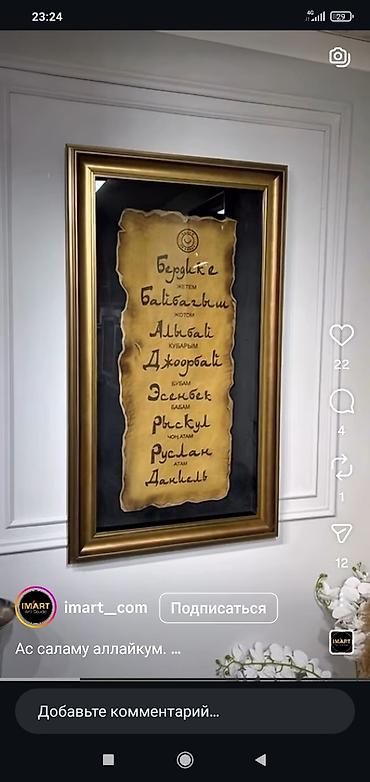 23:24
4G
29
Бердике
ЖЕТЕМ
Байбагыш
ЖОТОМ
Алыбай
КУБАРЫМ
Джоорбай
БУБАМ
Эсенбек
БАБАМ
Рыскул
ЧОҢ АТАМ
Руслан
АТАМ
Даниель
22
4
1
12
IMART
imart__com
Подписаться
IMART
Ас саламу аллайкум. ...
Добавьте комментарий...